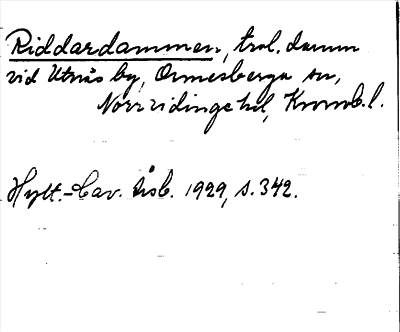 Riddardammen, trol. damm
vid Utnäs by, Ormesberga sn,
Norrvidinge hd, Kronob. l.
Hylt.-Cav. årsb. 1929, s. 342.